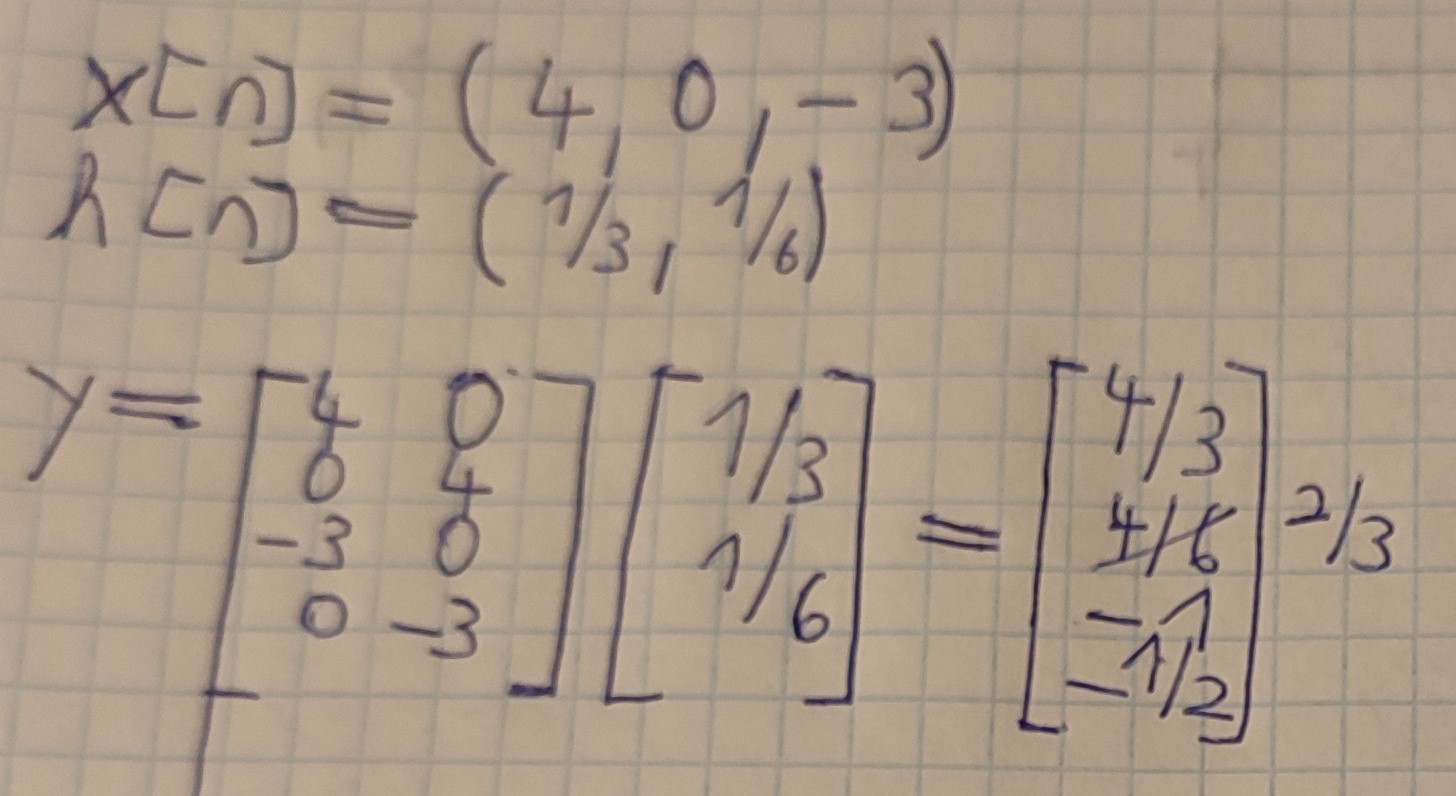 x[n] = (4, 0, -3)
h[n] = (1/3, 1/6)
y = [4 0
0 4
-3 0
0 -3] [1/3
1/6] = [4/3
4/6
-1
-1/2] 2/3